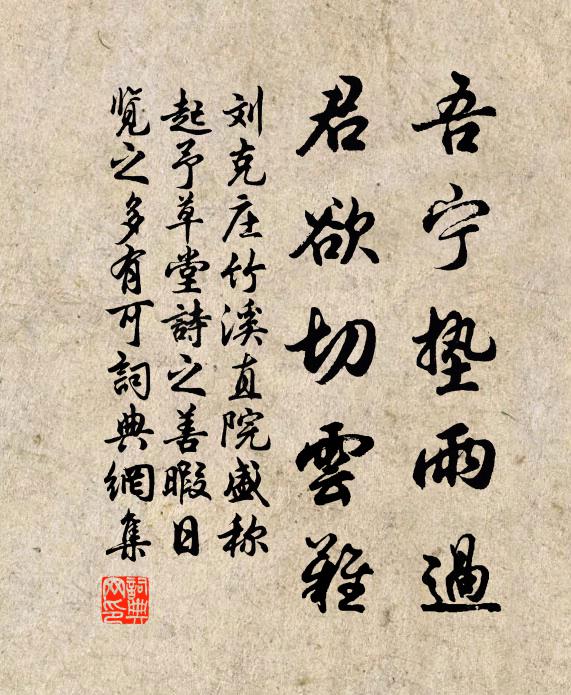 吾宁垫雨過
君欲切雲難
刘克庄竹溪直院盛称
起予草堂詩之善暇日
览之多有可詞典網集
詞典網印